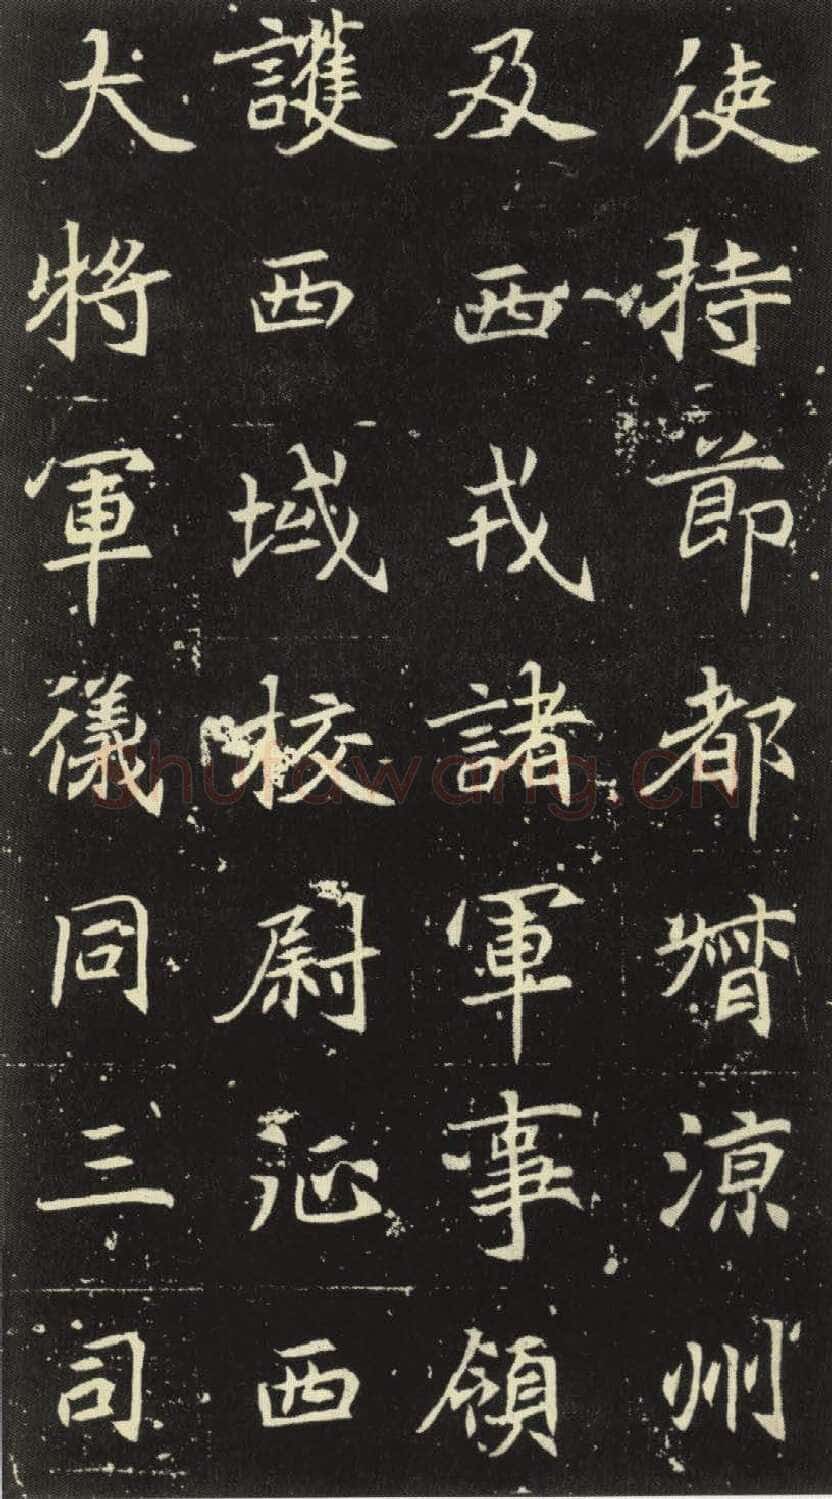 使持節都督涼州
及西戎諸軍事領
護西域校尉征西
大將軍儀同三司
shufawang.cn